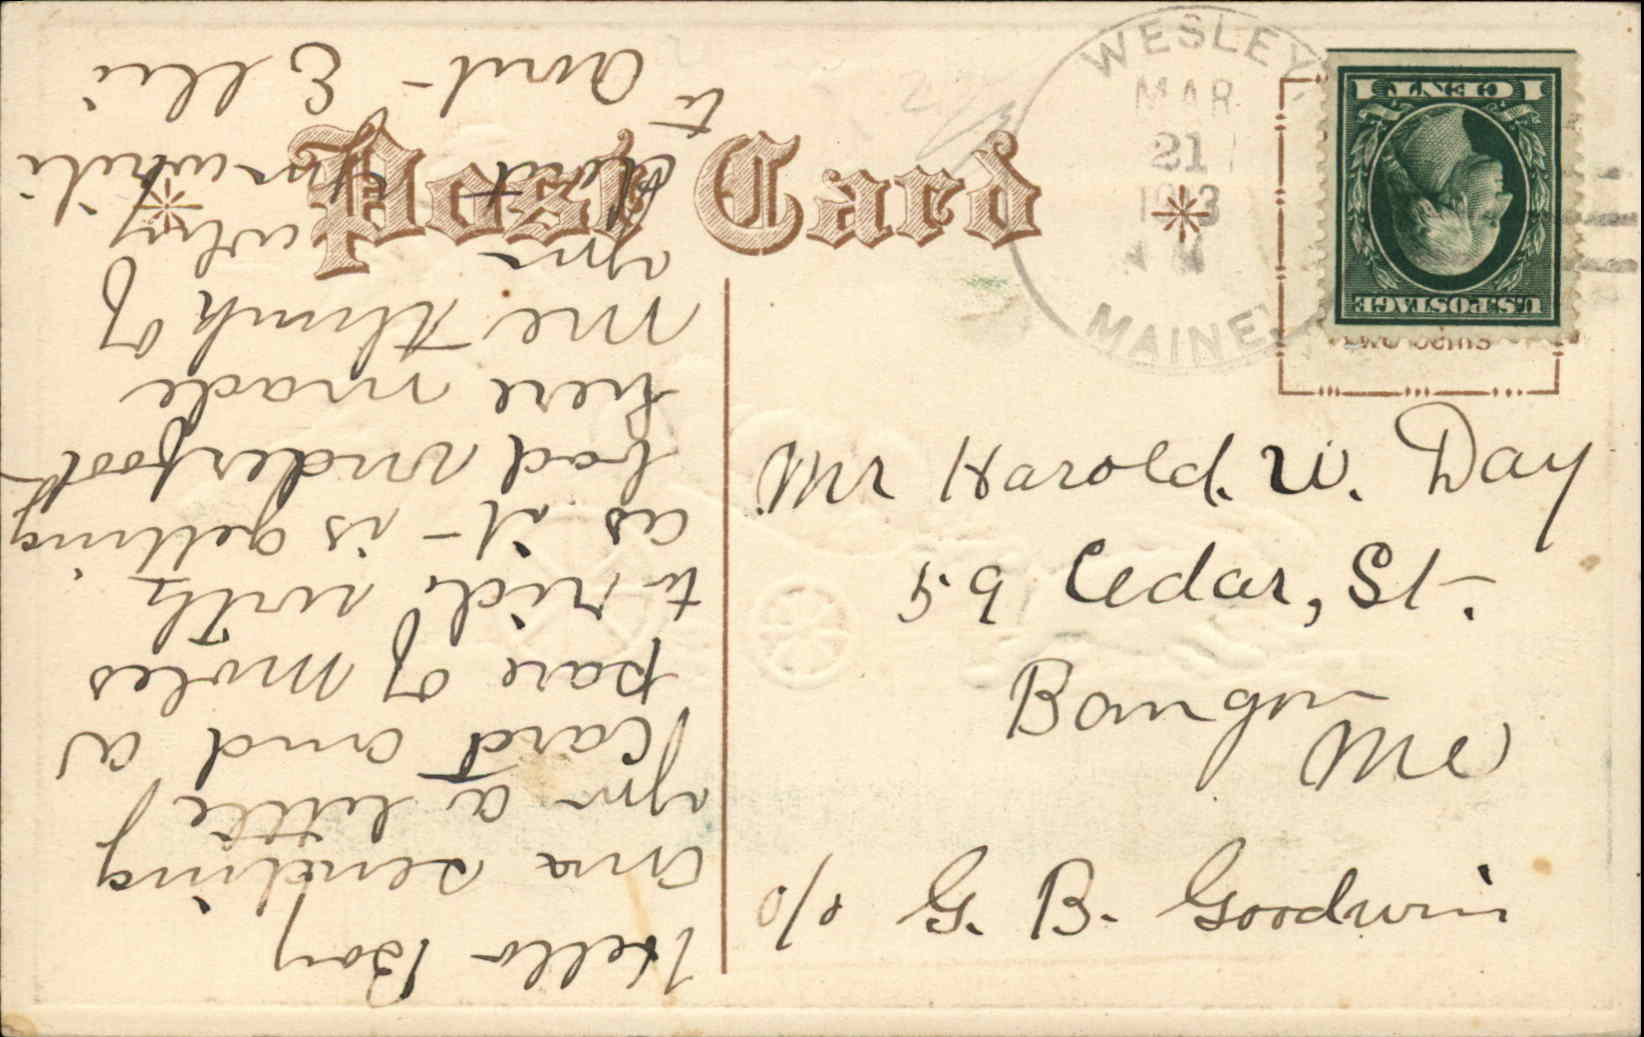 Post Card
WESLEY
MAR
21
1913
MAINE
U.S. POSTAGE
1 CENT 1
Mr Harold. W. Day
59 Cedar, St.
Bangor
Me
c/o G. B. Goodwin
Hello Boy
am sending
you a little
card and a
pare of moles
to ride with
as it is getting
bad underfoot
here made
me think of
you why
dont you write
to Aunt Ellie